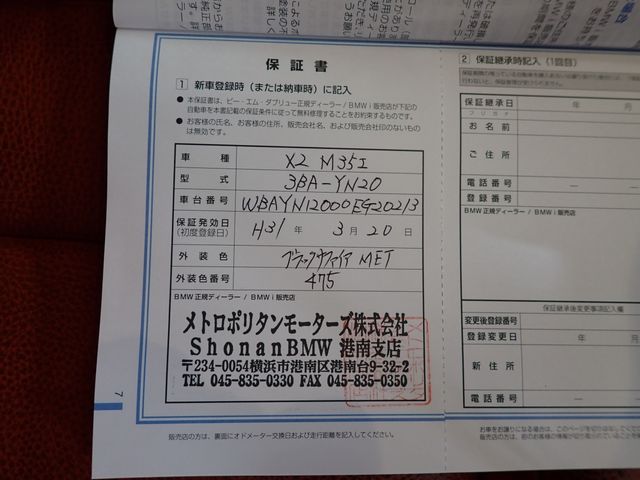 保証書
1 新車登録時（または納車時）に記入
● 本保証書は、ビー・エム・ダブリュー正規ディーラー / BMW i 販売店が下記の
自動車を本書記載の保証条件に従って無料修理することをお約束するものです。
● お客様の氏名、お客様の住所、販売会社名、および販売会社印のないもの
は無効です。
車種 X2 M35i
型式 3BA-YN20
車台番号 WBAYN12000EG20213
保証発効日
（初度登録日） H31年 3月20日
外装色 ブラックサファイア MET
外装色番号 475
BMW正規ディーラー / BMW i 販売店
メトロポリタンモーターズ株式会社
ShonanBMW 港南支店
〒234-0054横浜市港南区港南台9-32-2
TEL 045-835-0330 FAX 045-835-0350
販売店の方は、裏面にオドメーター交換日および走行距離を記入してください。
7
2 保証継承時記入（1回目）
保証継承日 年 月
フリガナ
お名前
ご住所
電話番号 — —
登録番号
BMW正規ディーラー / BMW i 販売店
保証継承後変更事項記入欄
変更後登録番号
登録変更日 年 月
新住所
電話番号 — —